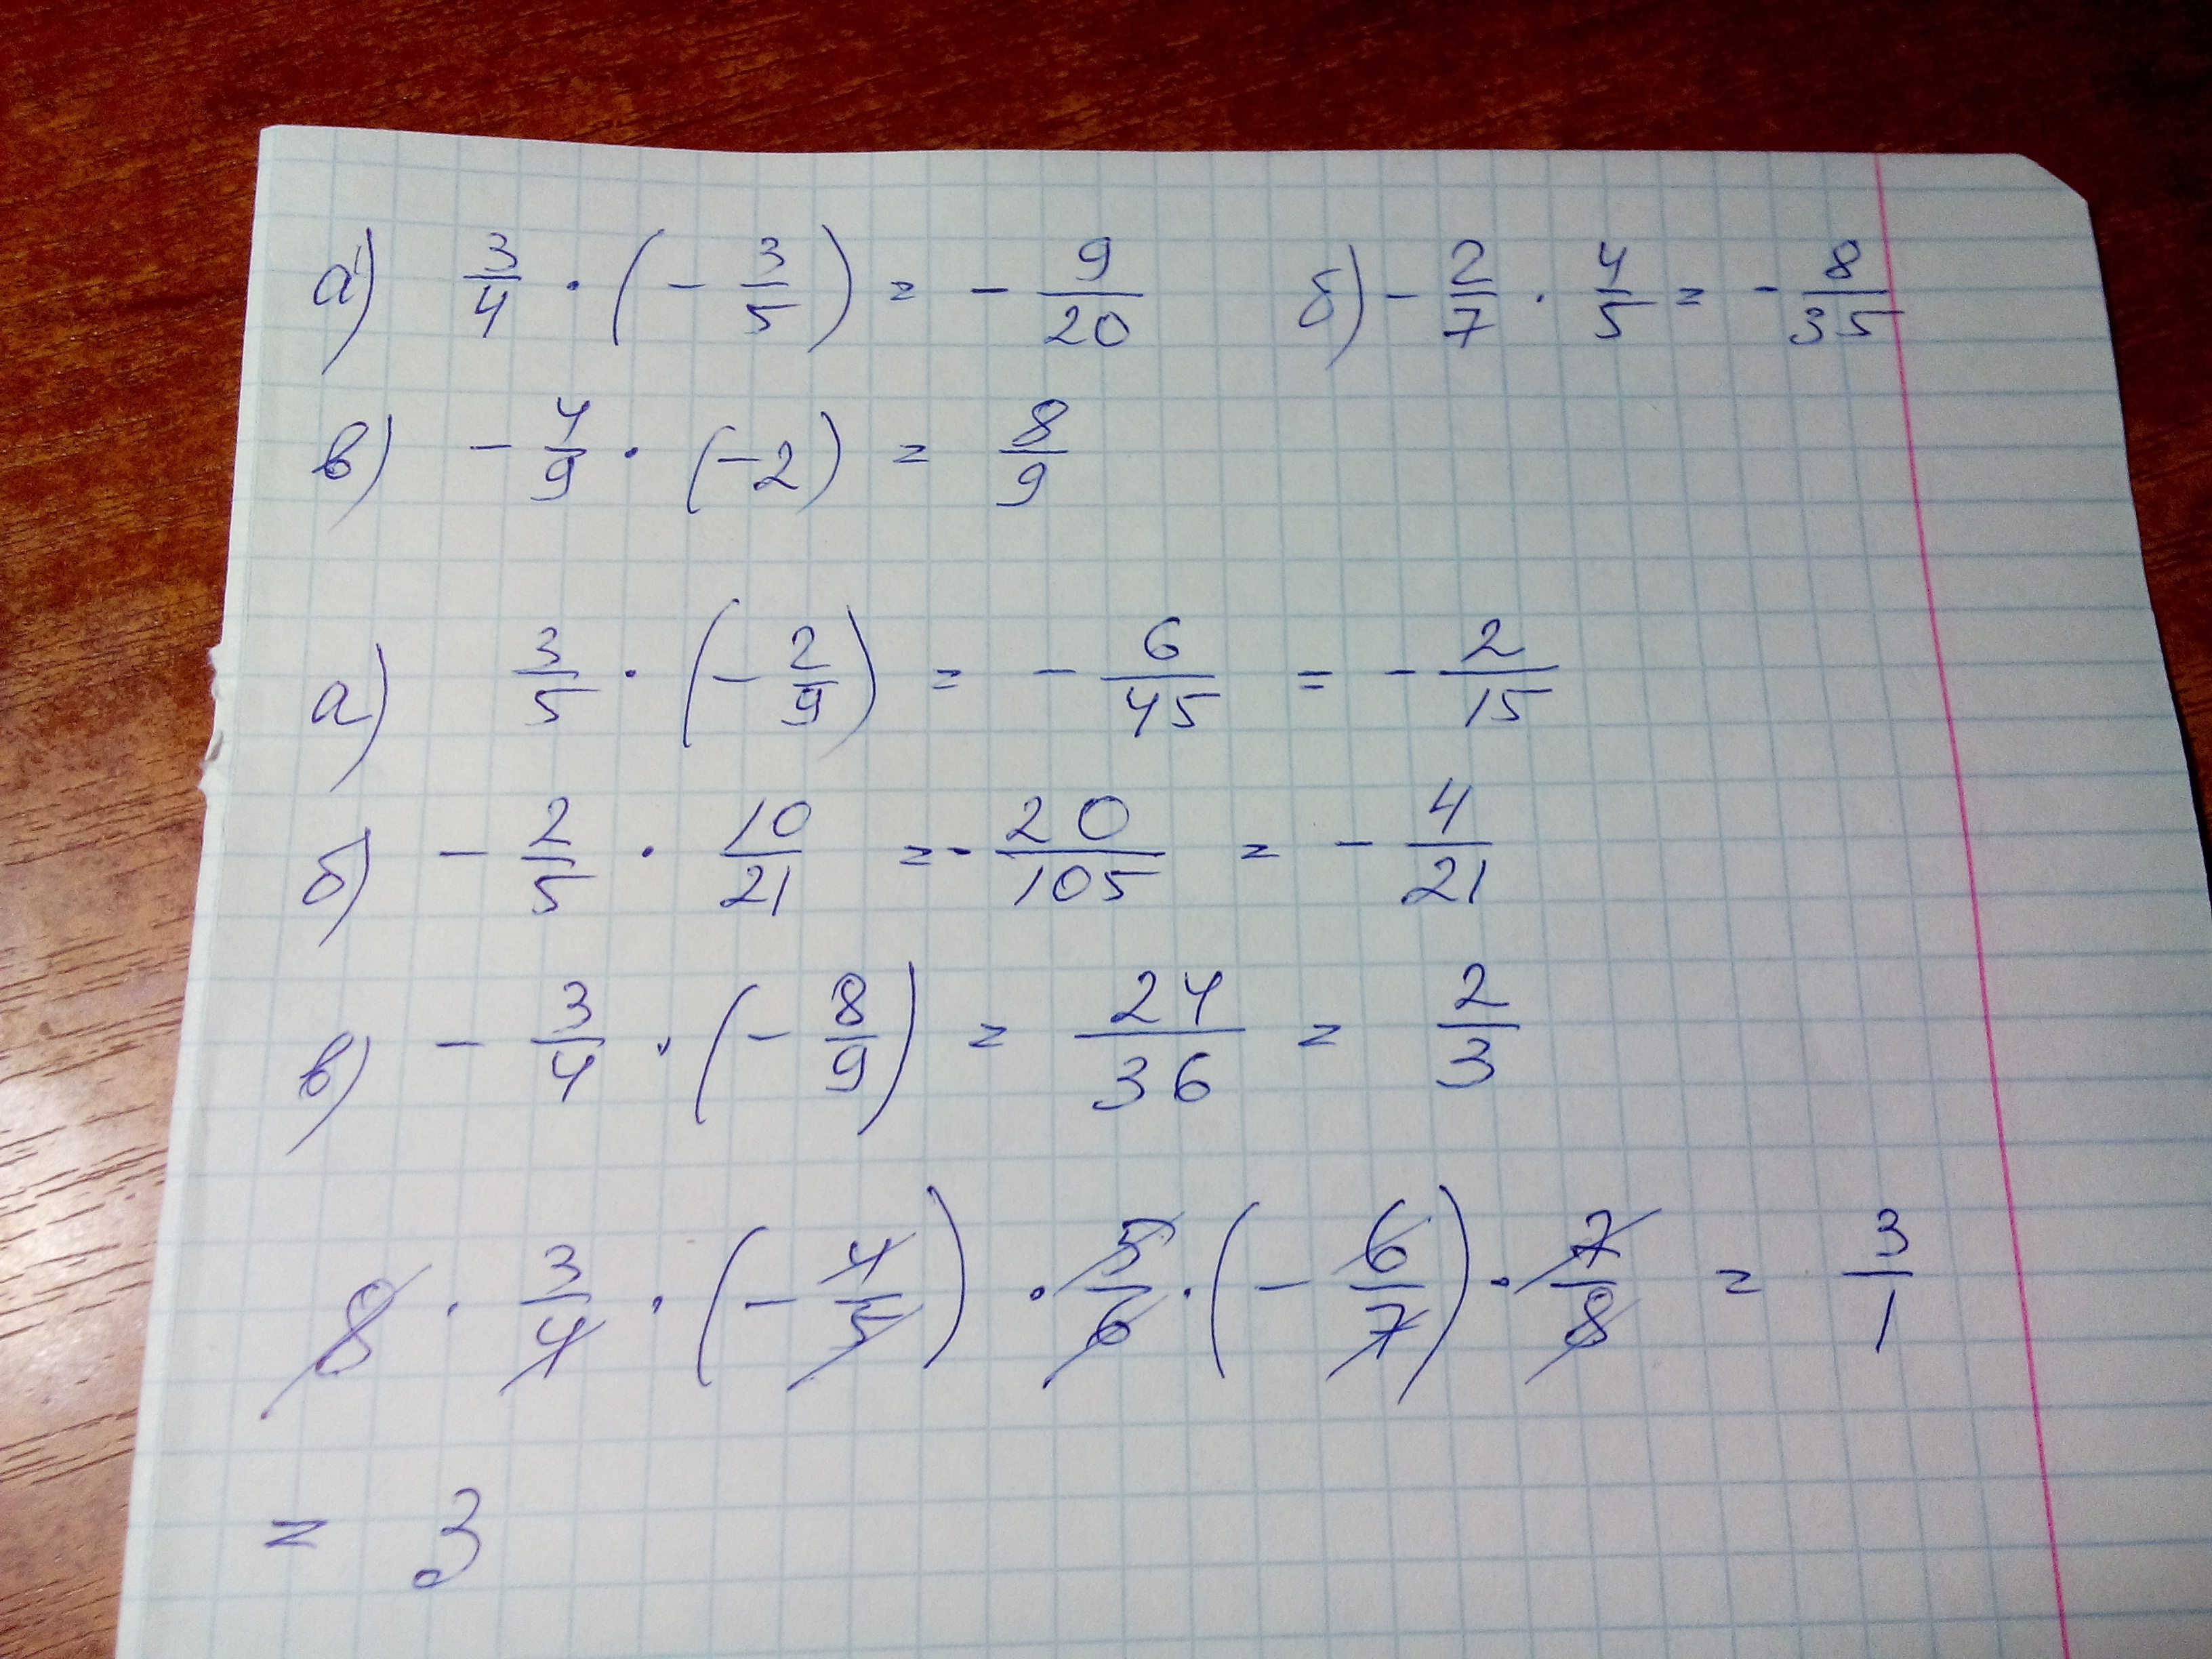 а) 3/4 · (- 3/5) = - 9/20 б) - 2/7 · 4/5 = - 8/35
в) - 4/9 · (-2) = 8/9
а) 3/5 · (- 2/9) = - 6/45 = - 2/15
б) - 2/5 · 10/21 = - 20/105 = - 4/21
в) - 3/4 · (- 8/9) = 24/36 = 2/3
8 · 3/4 · (- 4/5) · 5/6 · (- 6/7) · 7/8 = 3/1
= 3